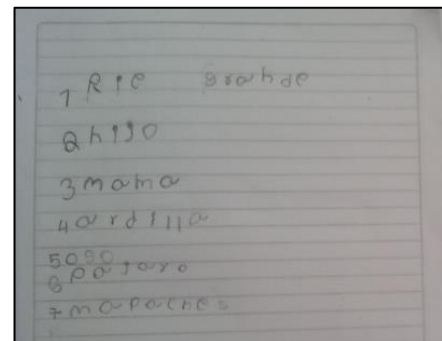 1 Rie grande
2 hijo
3 mama
4 ardilla
5 oso
6 pajaro
7 mapaches